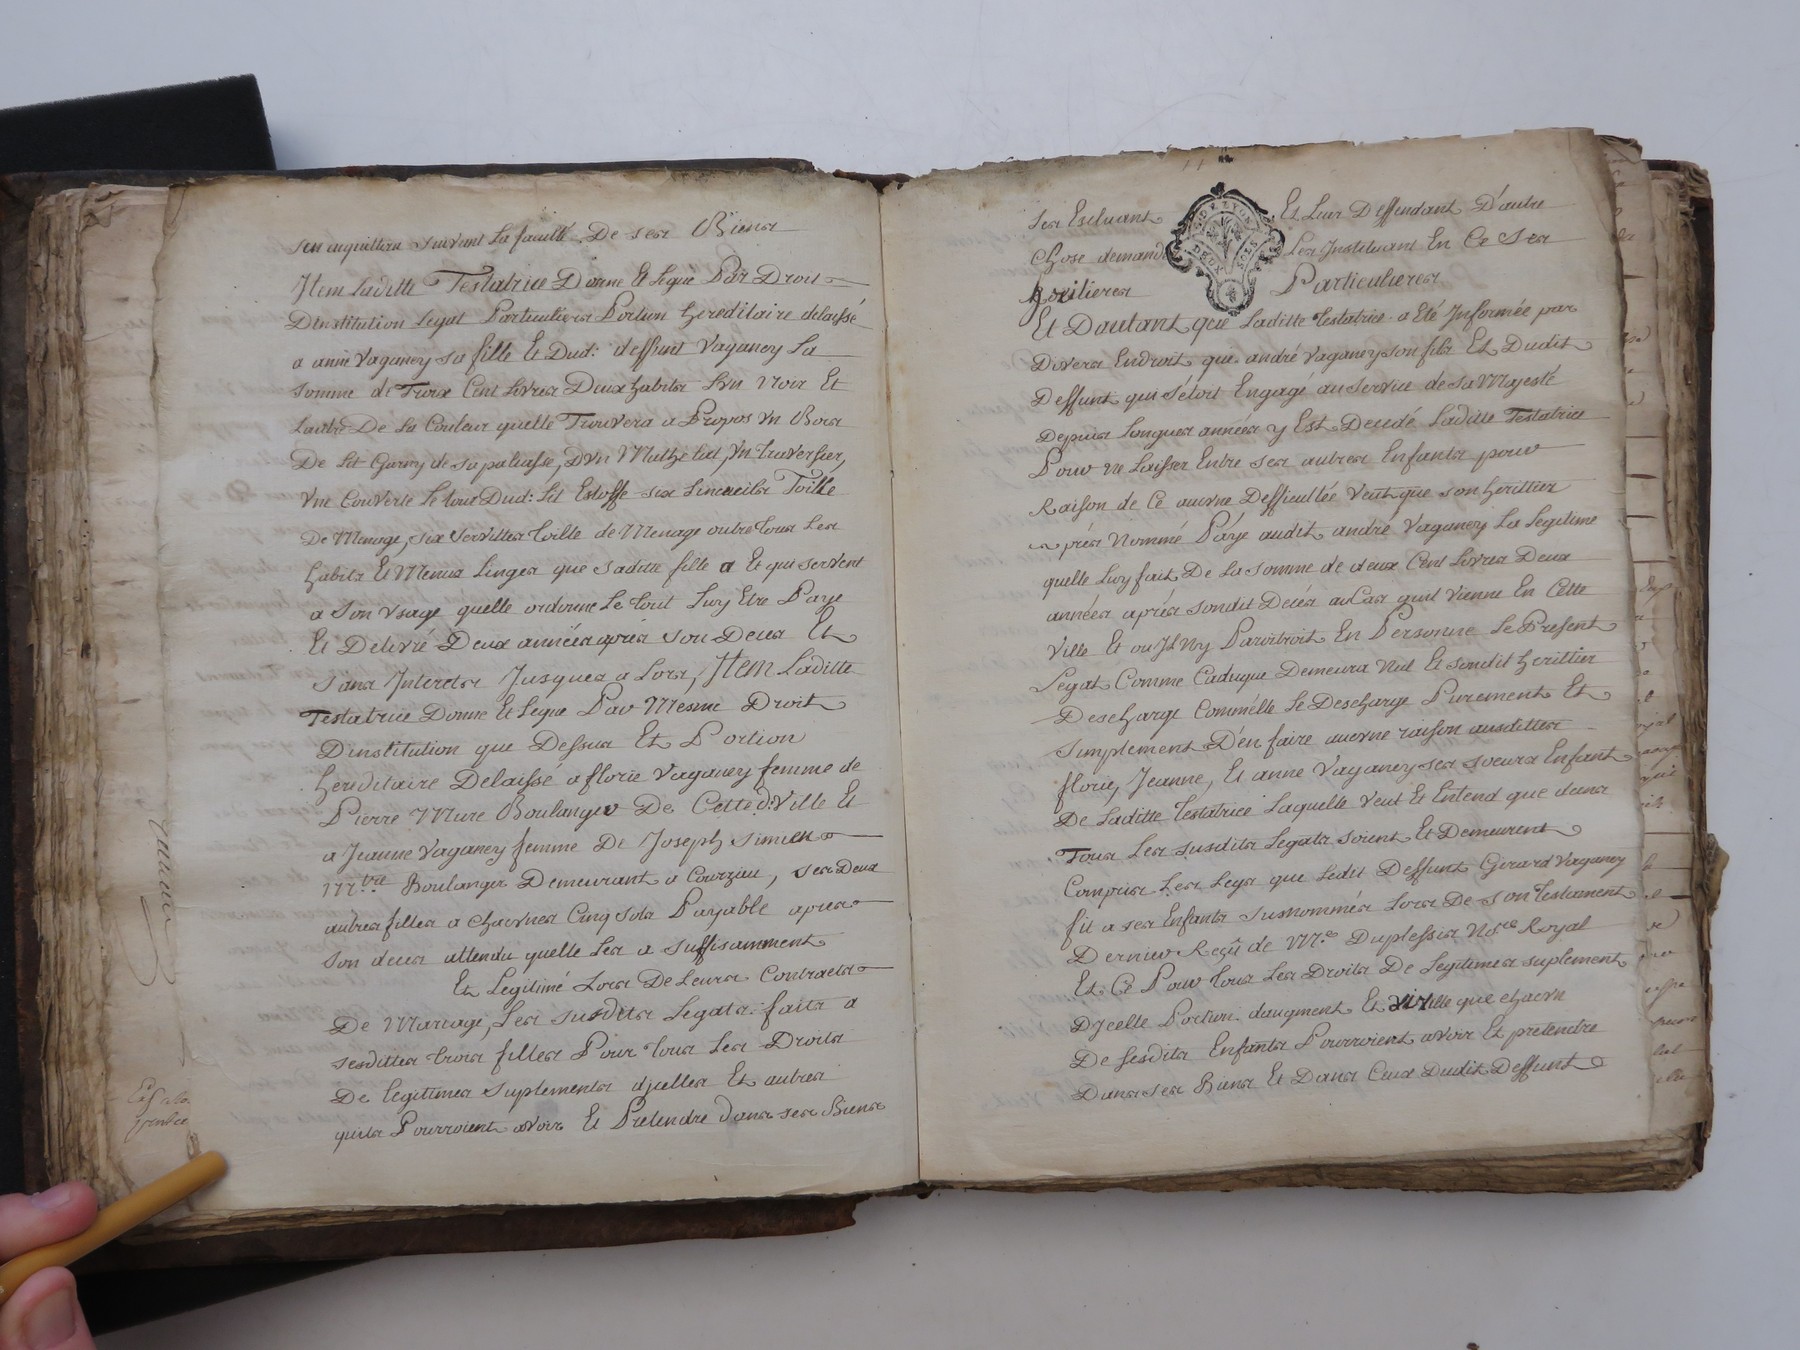 sen aquitteru suivant la faculté De ses Biens
Item Laditte Testatrice Donne Et legue Par Droit
Dinstitution Legat Particuliers Portion hereditaire delaissé
a anne vaganey sa fille Et Dud: deffunt Vaganey La
somme de Trois Cent Livres Deux habits L'un Noir Et
Lautre De La Couleur quelle Trouvera a Propos Vn Bois
De Lit Garny de sa paliasse, D'vn Mathelat, Vn traversier,
Vne Couverte Le tour Dud: Lit Estoffe six Linceuils Toille
De Menage, six serviettes toille de Menage outre tous Les
habits Et Menus Linges que saditte fille a Et qui servent
a son Vsage quelle ordonne Le tout Luy Etre Paye
Et Delivré Deux années aprés son Deces Et
sans Interets Jusques a Lors, Item Laditte
Testatrice Donne Et Legue Par Mesme Droit
Dinstitution que Dessus Et Portion
hereditaire Delaissé a florie Vaganey femme de
Pierre Mure Boulanger De Cette d: Ville Et
a Jeanne Vaganey femme De Joseph Simon
M.tre Boulanger Demeurant a Courzieu, ses Deux
autres filles a chacunes Cinq sols Payable apres
son deces attendu quelle Les a suffisamment
Et Legitimé Lors De Leurs Contracts
De Mariage, Les susdits Legats faits a
sesdittes trois filles Pour tous Les Droits
De legitimes suplements d'jcelles Et autres
quils Pourroient avoir Et Pretendre dans ses Biens
Les Excluant Et Leur Deffendant D'autre
Chose demander Les Instituant En Ce Ses
heritieres Particulieres
Et Dautant que Laditte testatrice a Eté Informée par
Divers Endroit que andré Vaganey son fils Et Dudit
Deffunt qui s'étoit Engagé au service de sa Majesté
Depuis longues années y Est Decedé Laditte Testatrice
Pour ne Laisser Entre ses autres Enfants pour
Raison de Ce aucune Difficultée Veut que son heritier
aprés Nommé Páye audit andré Vaganey La legitime
quelle Luy fait De La somme de deux Cent Livres Deux
années aprés sondit Decés au Cas quil Vienne En Cette
Ville Et ou Il Ny Paroitroit En Personne Le Present
Legat Comme Caduque Demeura Nul Et sondit heritier
Descharge Comme Elle Le Descharge Purement Et
simplement D'en faire aucune raison ausdittes
florie, Jeanne, Et anne Vaganey ses soeurs Enfant
De Laditte testatrice Laquelle Veut Et Entend que dans
Tous Les susdits Legats soient Et Demeurent
Compris Les Legs que Ledit Deffunt Gerard Vaganey
fit a ses Enfants susnommés Lors De son testament
Dernier Reçû de M.e Duplessis No.re Royal
Et Ce Pour tous Les Droits De legitimes suplement
D'jcelle Portion d'augment Et virille que chacun
De sesdits Enfants Pourroient avoir Et pretendre
Dans ses Biens Et Dans Ceux Dudit Deffunt